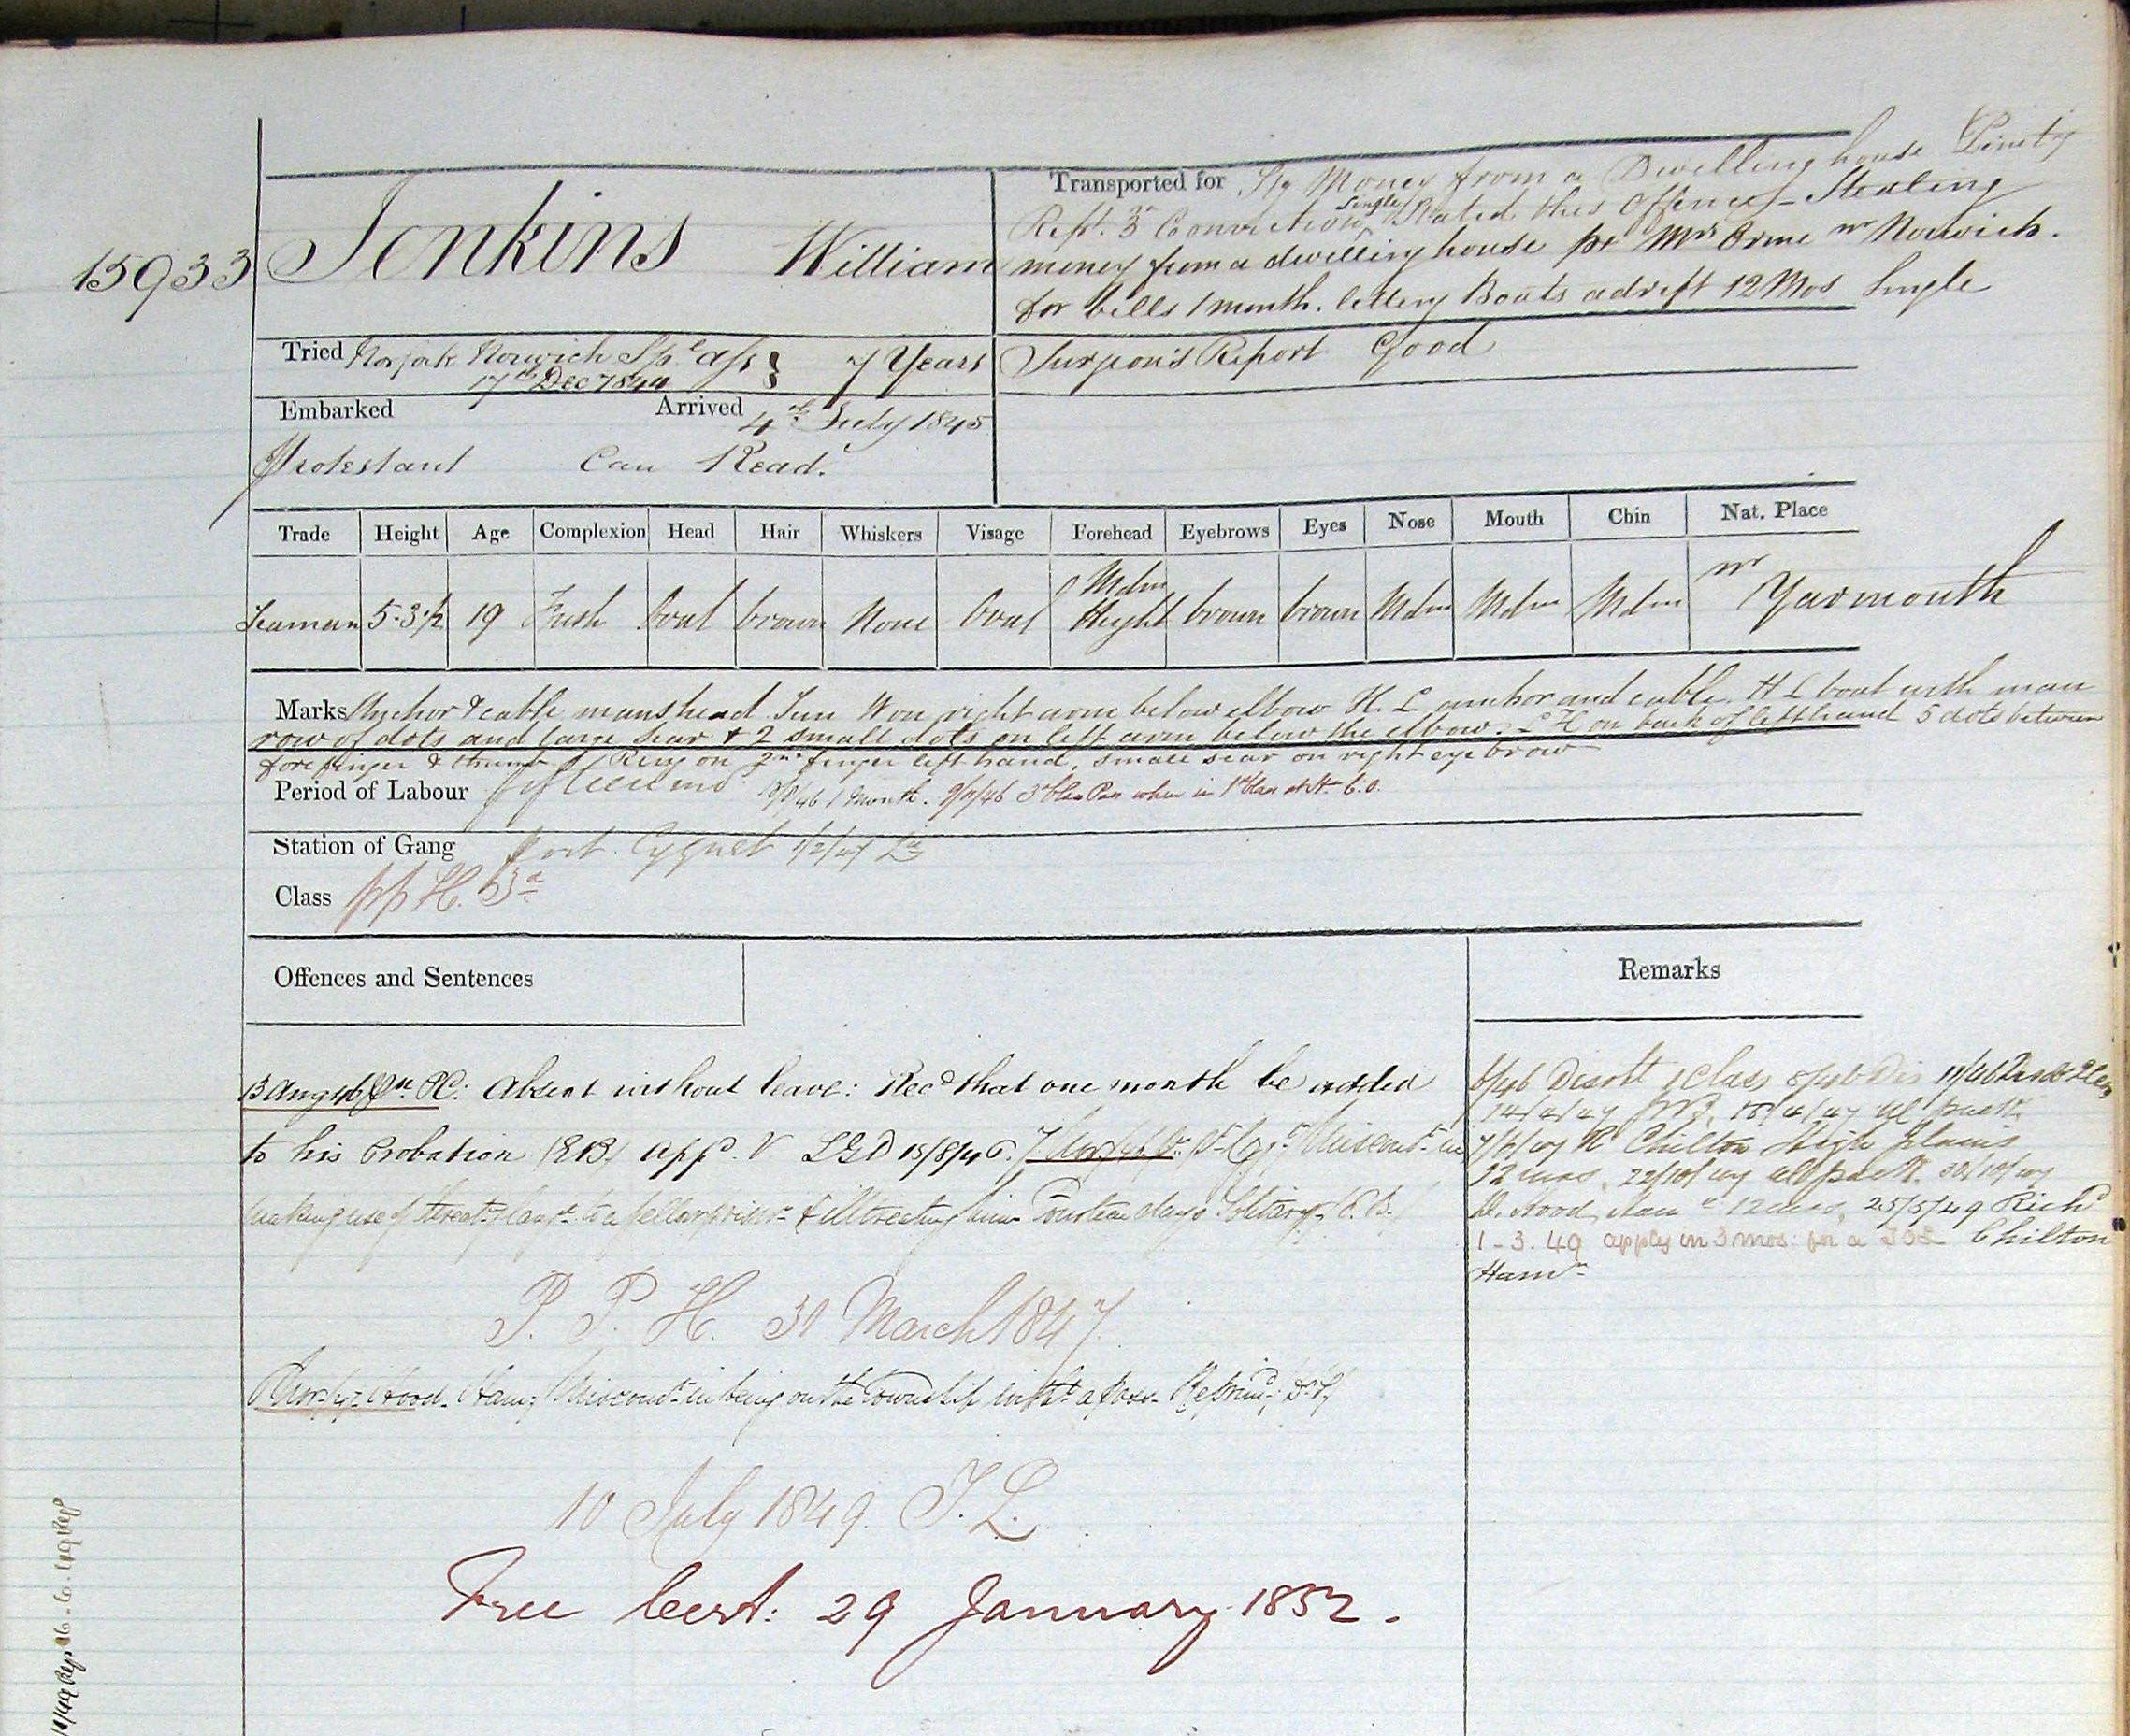 15933 Jenkins William
Transported for Stg Money from a Dwelling house
Rept. 3rd Conviction Single Stated this Offence – Stealing
money from a dwelling house pr Mrs Orme nr Norwich.
for bills 1 month. letting Boats adrift 12 Mos Single
Tried Norfolk Norwich Spl Ass } 7 Years
17th Decr 1844
Surgeon's Report Good
Embarked Arrived 4th July 1845
Protestant Can Read.
Trade Height Age Complexion Head Hair Whiskers Visage Forehead Eyebrows Eyes Nose Mouth Chin Nat. Place
Seaman 5-3½ 19 Fresh Oval brown None Oval Mdm Height brown brown Mdm Mdm Mdm nr Yarmouth
Marks Anchor & cable manshead Sun W on right arm below elbow H. L anchor and cable. H L boat with man
row of dots and large scar & 2 small dots on left arm below the elbow. L H on back of left hand 5 dots between
forefinger & thumb Ring on 2nd finger left hand, small scar on right eye brow
Period of Labour Fifteen mos 1 Month. 9/11/46 3rd Class when in 1st Class
Station of Gang Port Cygnet 1/2/47
Class pp H. 3rd
Offences and Sentences
Remarks
13 Aug 46 P.C: Absent without leave: Recd that one month be added
to his Probation (E.B.) appd. V LGD 15/8/46. Miscont in
making use of threatg langе to a fellow prisr & illtreating him Fourteen days Solitary
P. P. H. 31 March 1847.
Hood. Ham; Miscondt in being on the Township witht a pass – Reprimd;
10 July 1849. T. L.
Free Cert: 29 January 1852.
14/4/47
R Chilton High Plains
12 mos. 22/10/47 30/10/47
D. Hood Ham 12 mos, 25/5/49 Richd
1-3.49 apply in 3 mos: for a TOL Chilton
Hamn